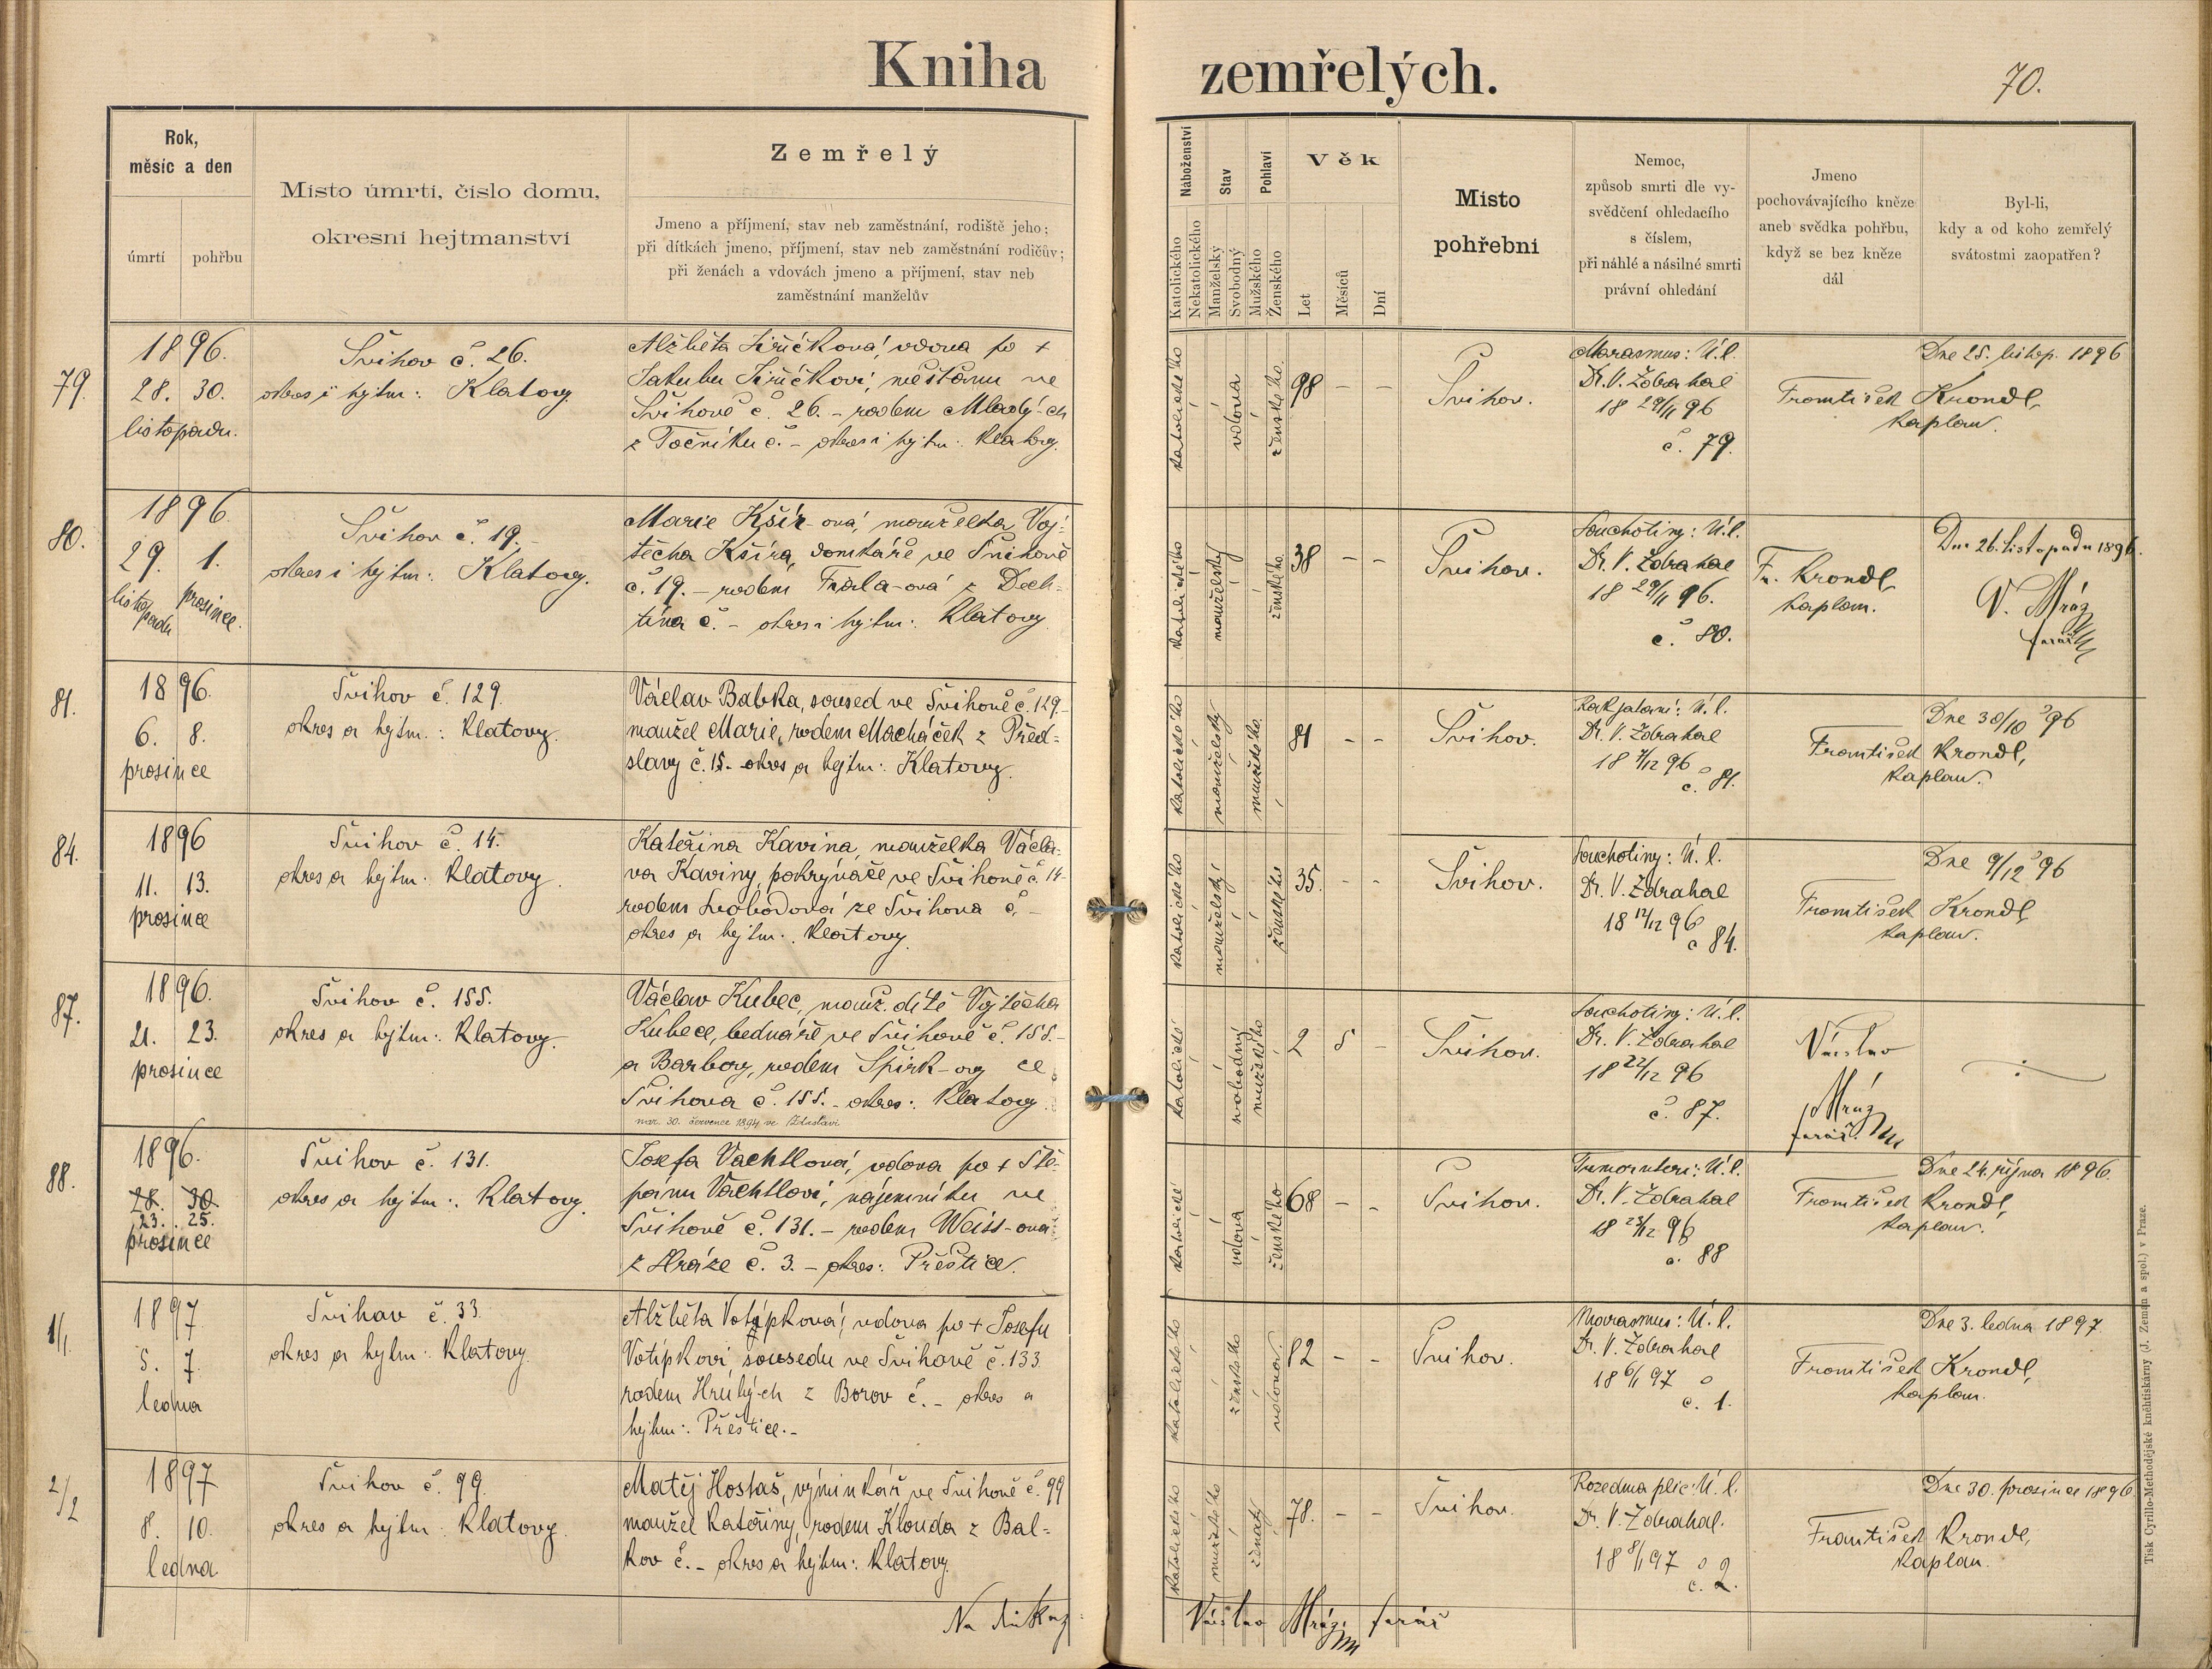 Kniha zemřelých.
70.
Rok,
měsíc a den
úmrtí pohřbu
Místo úmrtí, číslo domu,
okresní hejtmanství
Zemřelý
Jmeno a příjmení, stav neb zaměstnání, rodiště jeho;
při dítkách jmeno, příjmení, stav neb zaměstnání rodičův;
při ženách a vdovách jmeno a příjmení, stav neb
zaměstnání manželův
Náboženství
Katolického
Nekatolického
Stav
Manželský
Svobodný
Pohlaví
Mužského
Ženského
Věk
Let
Měsíců
Dní
Místo
pohřební
Nemoc,
způsob smrti dle vy-
svědčení ohledacího
s číslem,
při náhlé a násilné smrti
právní ohledání
Jmeno
pochovávajícího kněze
aneb svědka pohřbu,
když se bez kněze
dál
Byl-li,
kdy a od koho zemřelý
svátostmi zaopatřen?
79.
1896.
28. 30.
listopadu.
Švihov č. 26.
okres i hejtm: Klatovy
Alžběta Jiřičková, vdova po +
Jakubu Jiřičkovi, měšťanu ve
Švihově č. 26. - rodem Mladý-ch
z Točníku č. - okres i hejtm: Klatovy.
katolického
vdova
ženského.
98 - -
Švihov.
Marasmus: Ú.l.
Dr. V. Zdrahal
18 29/11 96
č. 79.
František Krondl,
kaplan.
Dne 25. listop. 1896
80.
1896
29. 1.
listopadu prosince.
Švihov č. 19.
okres i hejtm: Klatovy.
Marie Kšír-ová, manželka Voj-
těcha Kšíra, domkáře ve Švihově
č. 19. - rodem -ová z Dech-
tína č. - okres i hejtm: Klatovy
katolického
manželský
ženského.
38 - -
Švihov.
Souchotiny: Ú.l.
Dr. V. Zdrahal
18 29/11 96.
č. 80.
Fr. Krondl,
kaplan.
Dne 26. listopadu 1896.
V. Mráz
farář
81.
1896.
6. 8.
prosince
Švihov č. 129.
okres a hejtm.: Klatovy.
Václav Babka, soused ve Švihově č. 129.
manžel Marie, rodem Macháček z Před-
slavy č. 15. okres a hejtm: Klatovy.
katolického
manželský
mužského.
81 - -
Švihov.
Dr. V. Zdrahal
18 7/12 96
č. 81.
František Krondl,
kaplan.
Dne 30/10 96
84.
1896
11. 13.
prosince
Švihov č. 14.
okres a hejtm: Klatovy.
Kateřina Kavina, manželka Václa-
va Kaviny, pokrývače ve Švihově č. 14
rodem Svobodová ze Švihova č. -
okres a hejtm.: Klatovy.
katolického
manželský
ženského
35. - -
Švihov.
Souchotiny: Ú.l.
Dr. V. Zdrahal
18 12/12 96
č 84.
František Krondl,
kaplan.
Dne 9/12 96
87.
1896.
21. 23.
prosince
Švihov č. 155.
okres a hejtm: Klatovy.
Václav Kubec, manž. dítě Vojtěcha
Kubece, bednáře ve Švihově č. 155.
a Barbory, rodem Špirk-ovy ze
Švihova č. 155. - okres: Klatovy.
nar. 30. července 1894 ve Zdeslavi
katolické
svobodný
mužského
2 5 -
Švihov.
Souchotiny: Ú.l.
Dr. V. Zdrahal
18 22/12 96
č. 87.
Václav
Mráz
farář.
88.
1896.
28. 30.
23. 25.
prosince
Švihov č. 131.
okres a hejtm: Klatovy.
Josefa Vachtlová, vdova po + Ště-
pánu Vachtlovi, nájemníku ve
Švihově č. 131. - rodem Weiss-ová
z Hráze č. 3. - okres: Přeštice.
katolické
vdova
ženského
68 - -
Švihov.
Tumor uteri: Ú.l.
Dr. V. Zdrahal
18 23/12 96
č. 88
František Krondl,
kaplan.
Dne 24. října 1896.
1/1.
1897
5. 7.
ledna
Švihov č. 33.
okres a hejtm: Klatovy.
Alžběta Votýpková, vdova po + Josefu
Votípkovi, sousedu ve Švihově č. 133
rodem Hrubý-ch z Borov č. - okres a
hejtm: Přeštice. -
katolického
ženského
vdova.
82 - -
Švihov.
Marasmus: Ú.l.
Dr. V. Zdrahal
18 6/1 97
č. 1.
František Krondl,
kaplan.
Dne 3. ledna 1897.
2/2
1897
8. 10.
ledna.
Švihov č. 99.
okres a hejtm: Klatovy.
Matěj Hostaš, výminkář ve Švihově č. 99
manžel Kateřiny, rodem Klouda z Bal-
kov č. - okres a hejtm: Klatovy.
katolického
mužského
ženatý
78. - -
Švihov.
Rozedma plic: Ú.l.
Dr. V. Zdrahal.
18 8/1 97
č. 2.
František Krondl,
kaplan.
Dne 30. prosince 1896
Václav Mráz farář
Tisk Cyrillo-Methodějské knihtiskárny (J. Zeman a spol.) v Praze.